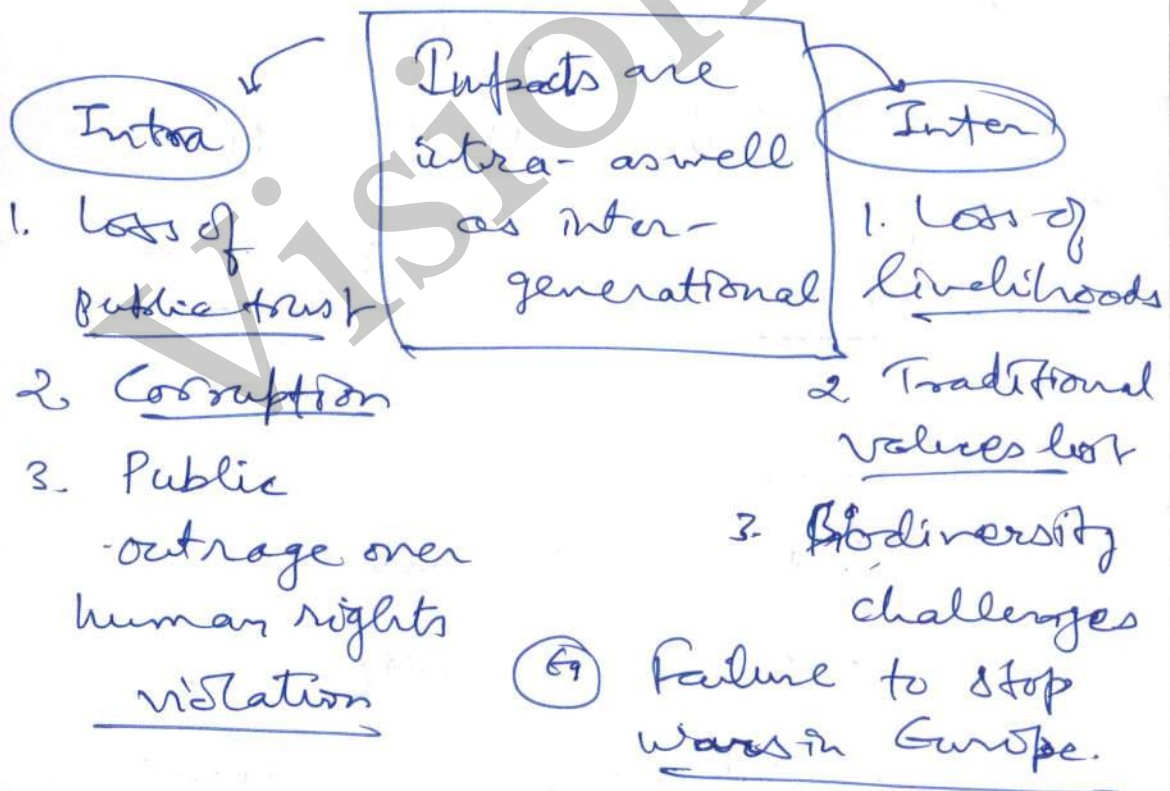 Impacts are
intra- as well
as inter-
generational
Intra
1. Loss of
public trust
2. Corruption
3. Public
outrage over
human rights
violation
Inter
1. Loss of
livelihoods
2 Traditional
values lost
3. Biodiversity
challenges
Eg Failure to stop
wars in Europe.
Vision